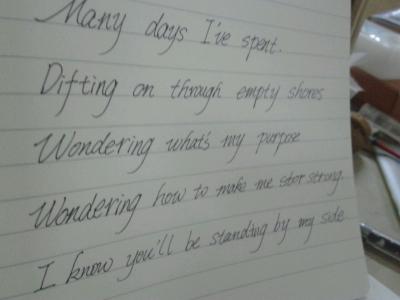 Many days I've spent.
Difting on through empty shores
Wondering what's my purpose
Wondering how to make me stor strong.
I know you'll be standing by my side